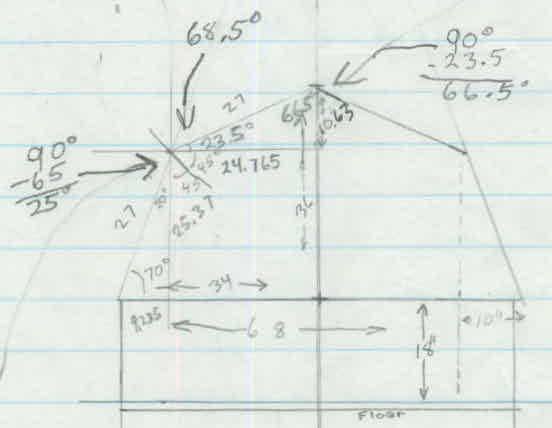 68.5°
90°
-23.5
66.5°
27
66.5
10.63
23.5°
45°
24.765
90°
-65
25°
45
20°
27
25.37
36
70°
34
9.235
68
18"
10"
Floor